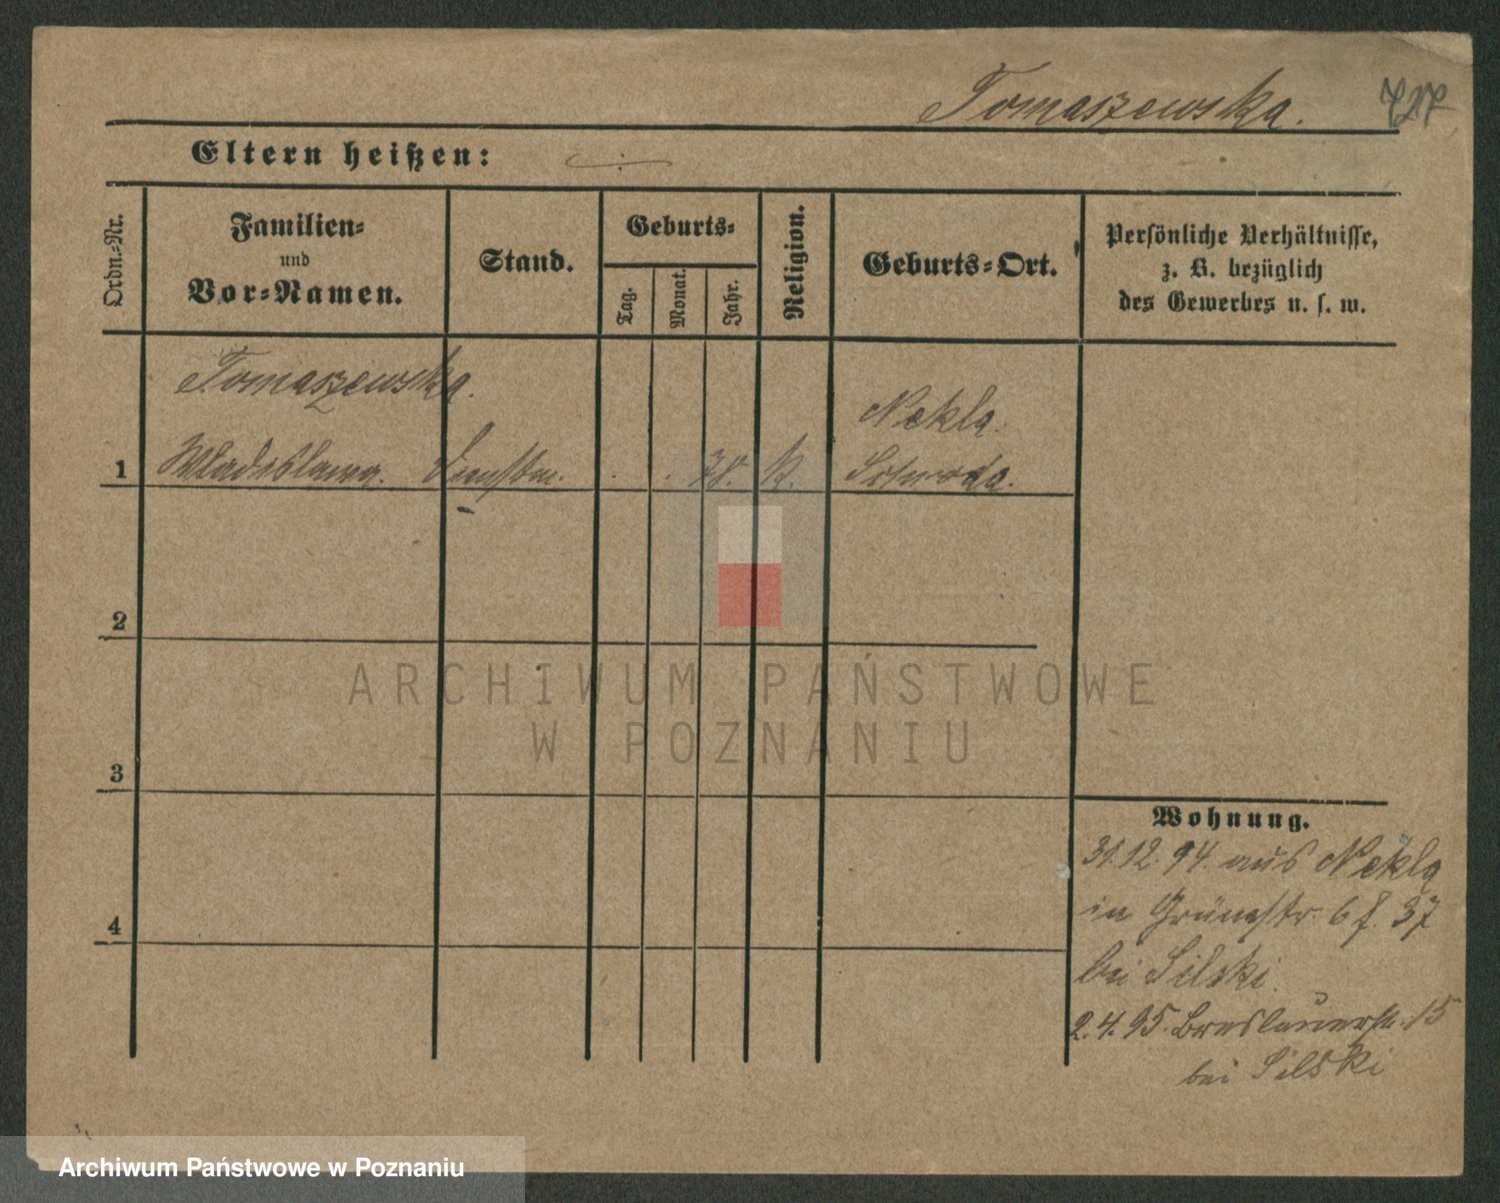 Tomaszewska. 727
Eltern heißen:
Ordn.-Nr.
Familien-
und
Vor-Namen.
Stand.
Geburts-
Tag.
Monat.
Jahr.
Religion.
Geburts-Ort.
Persönliche Verhältnisse,
z. B. bezüglich
des Gewerbes u. s. w.
Tomaszewska.
Nekla.
1 Wladislawa. Dienstm. 78. K. Schroda.
2
3
4
Wohnung.
31.12.94. aus Nekla
in Grünestr. 6 f. 37
bei Silski.
2.4.95. Breslauerstr. 15
bei Silski
ARCHIWUM PAŃSTWOWE
W POZNANIU
Archiwum Państwowe w Poznaniu